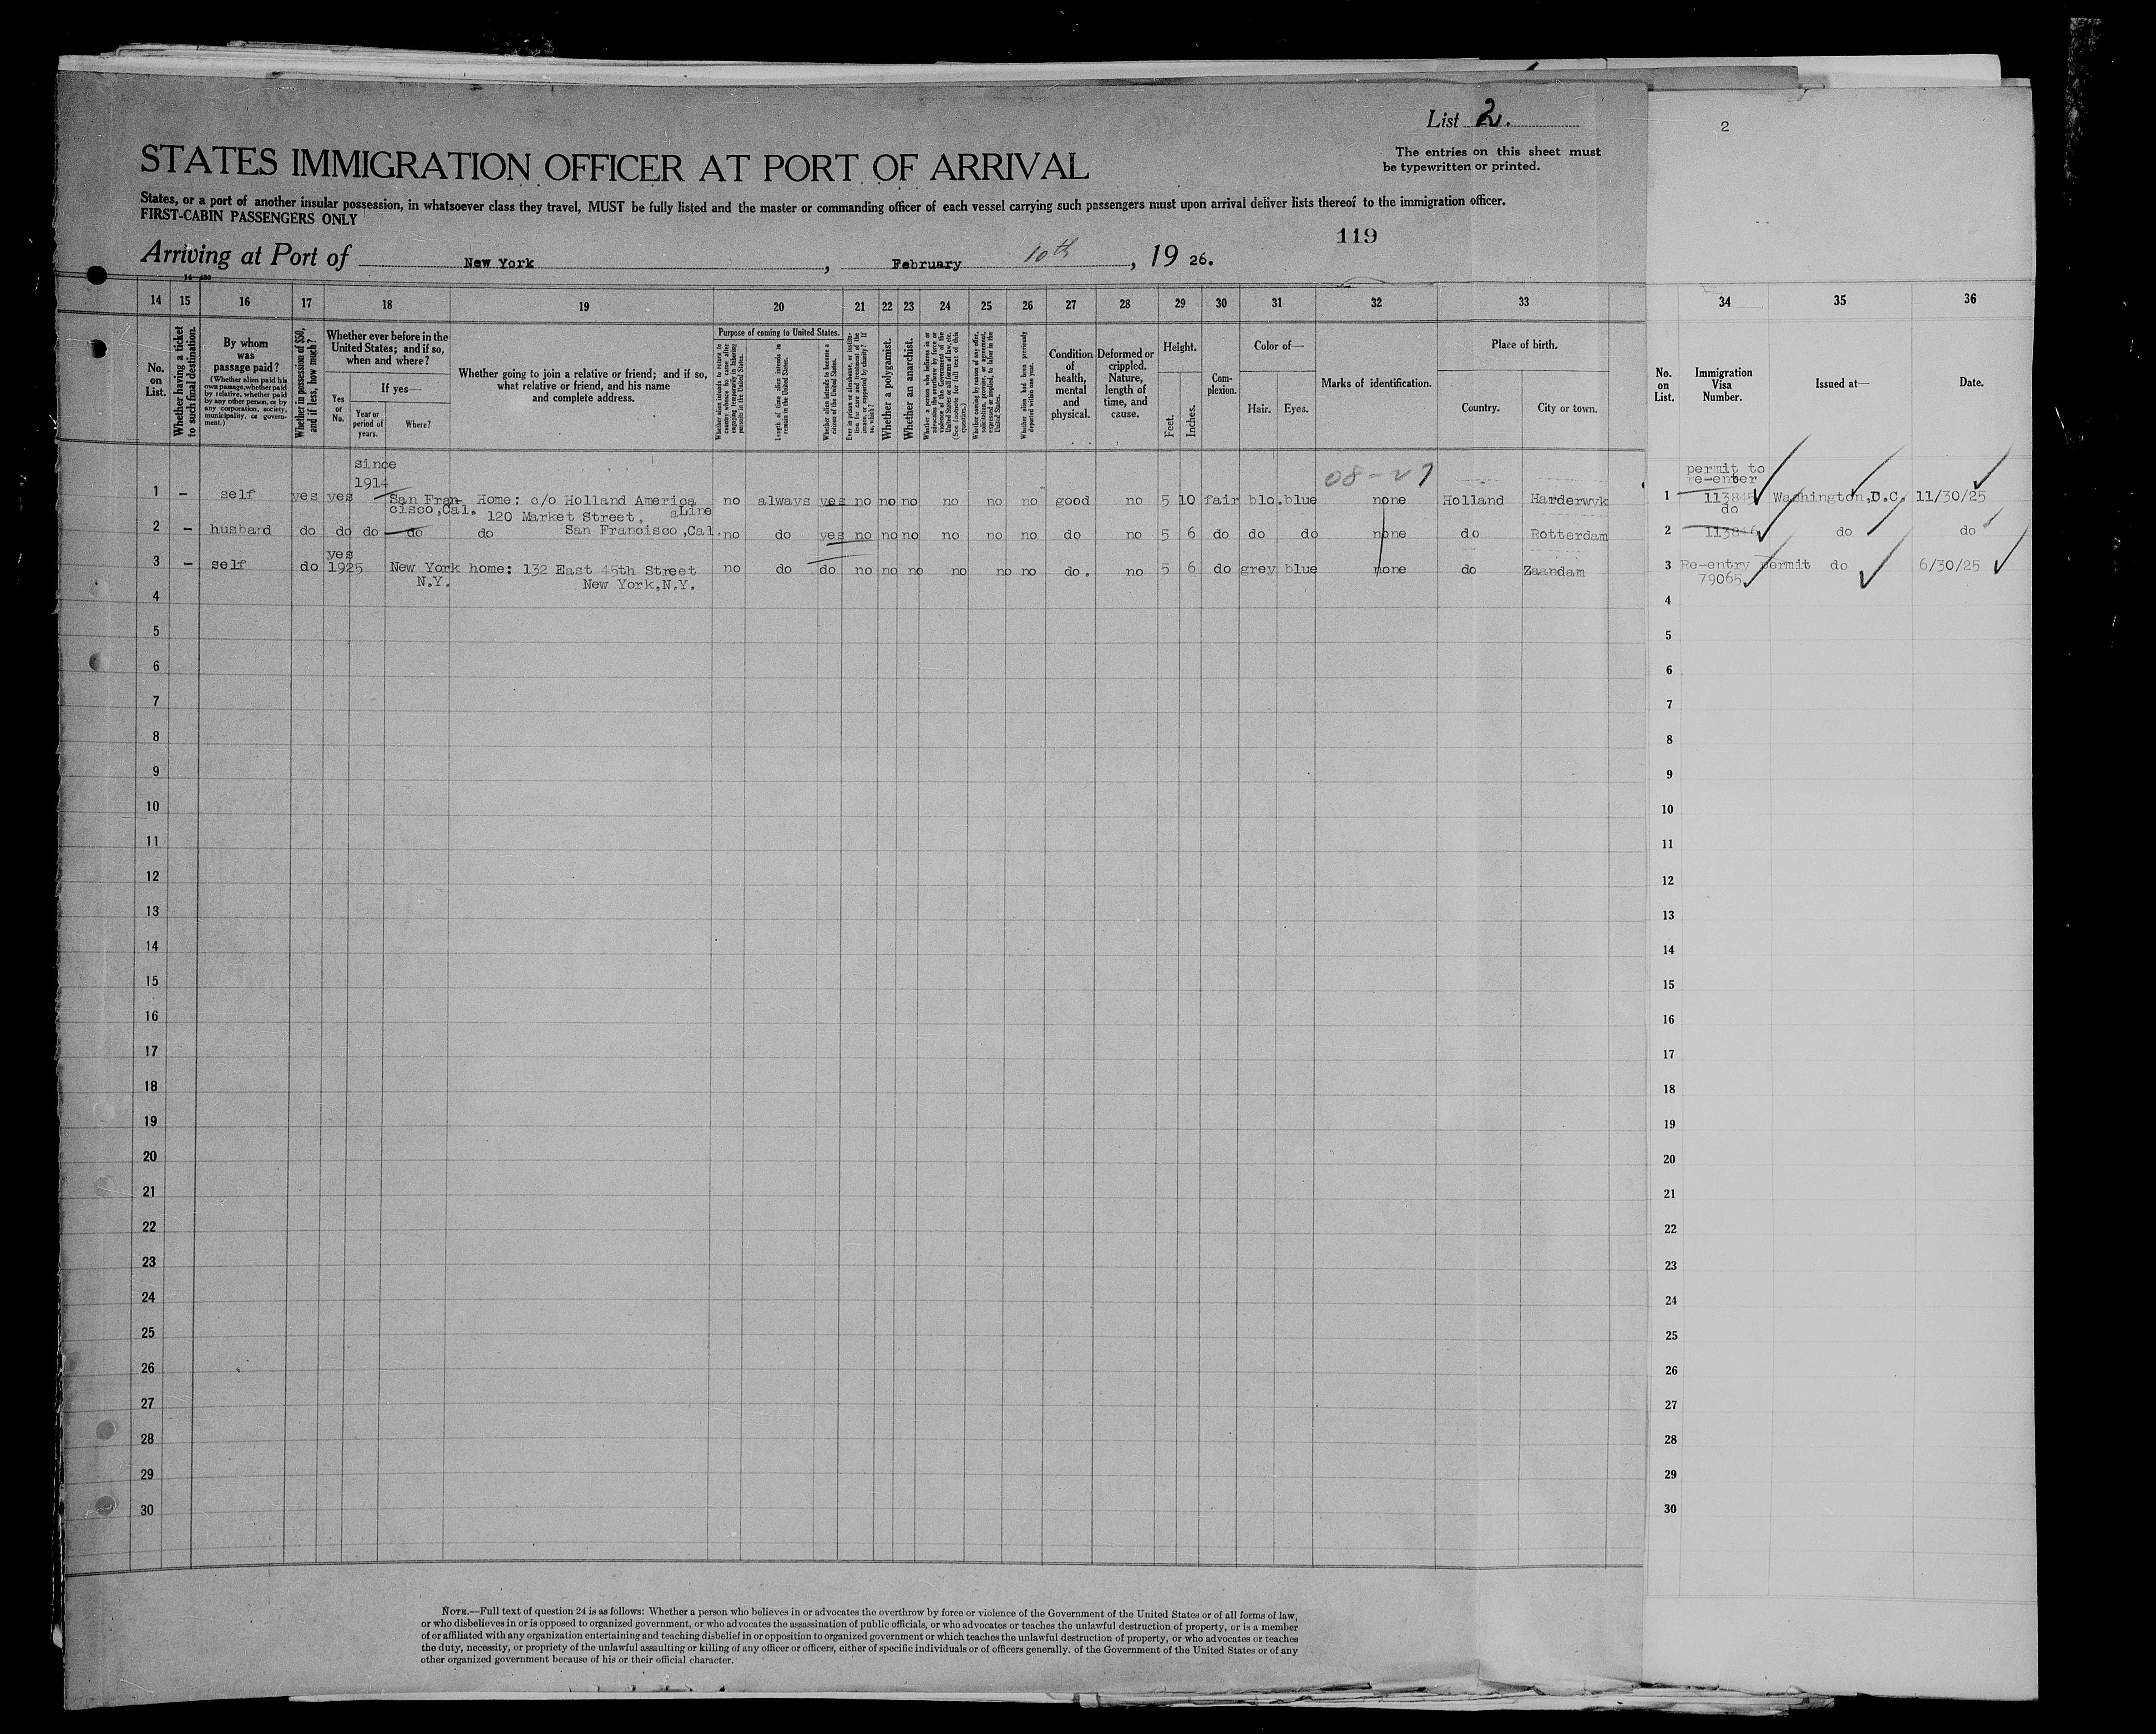 List 2.
2
The entries on this sheet must
be typewritten or printed.
STATES IMMIGRATION OFFICER AT PORT OF ARRIVAL
States, or a port of another insular possession, in whatsoever class they travel, MUST be fully listed and the master or commanding officer of each vessel carrying such passengers must upon arrival deliver lists thereof to the immigration officer.
FIRST-CABIN PASSENGERS ONLY
119
Arriving at Port of New York, February 10th, 19 26.
14 15 16 17 18 19 20 21 22 23 24 25 26 27 28 29 30 31 32 33 34 35 36
No. on List.
Whether having a ticket to such final destination.
By whom was passage paid?
(Whether alien paid his own passage, whether paid by relative, whether paid by any other person, or by any corporation, society, municipality, or government.)
Whether in possession of $50, and if less, how much?
Whether ever before in the United States; and if so, when and where?
Yes or No.
If yes—
Year or period of years.
Where?
Whether going to join a relative or friend; and if so, what relative or friend, and his name and complete address.
Purpose of coming to United States.
Whether alien intends to return to country whence he came after engaging temporarily in laboring pursuits in the United States.
Length of time alien intends to remain in the United States.
Whether alien intends to become a citizen of the United States.
Ever in prison or almshouse, or institution for care and treatment of the insane, or supported by charity? If so, which?
Whether a polygamist.
Whether an anarchist.
Whether a person who believes in or advocates the overthrow by force or violence of the Government of the United States or all forms of law, etc. (See footnote for full text of this question.)
Whether coming by reason of any offer, solicitation, promise, or agreement, expressed or implied, to labor in the United States.
Whether alien had been previously deported within one year.
Condition of health, mental and physical.
Deformed or crippled. Nature, length of time, and cause.
Height.
Feet. Inches.
Complexion.
Color of—
Hair. Eyes.
Marks of identification.
Place of birth.
Country. City or town.
No. on List.
Immigration Visa Number.
Issued at—
Date.
since
1914
08-27
permit to
re-enter
1 – self yes yes San Fran- Home: c/o Holland America no always yes no no no no no no good no 5 10 fair blo. blue none Holland Harderwyk 1 113845 Washington,D.C. 11/30/25
cisco,Cal. 120 Market Street, Line
do
2 – husband do do do do do San Francisco,Cal. no do yes no no no no no no do no 5 6 do do do none do Rotterdam 2 113846 do do
yes
3 – self do 1925 New York home: 132 East 45th Street no do do no no no no no no do. no 5 6 do grey blue none do Zaandam 3 Re-entry permit do 6/30/25
N.Y. New York,N.Y. 79065
4 4
5 5
6 6
7 7
8 8
9 9
10 10
11 11
12 12
13 13
14 14
15 15
16 16
17 17
18 18
19 19
20 20
21 21
22 22
23 23
24 24
25 25
26 26
27 27
28 28
29 29
30 30
NOTE.—Full text of question 24 is as follows: Whether a person who believes in or advocates the overthrow by force or violence of the Government of the United States or of all forms of law,
or who disbelieves in or is opposed to organized government, or who advocates the assassination of public officials, or who advocates or teaches the unlawful destruction of property, or is a member
of or affiliated with any organization entertaining and teaching disbelief in or opposition to organized government or which teaches the unlawful destruction of property, or who advocates or teaches
the duty, necessity, or propriety of the unlawful assaulting or killing of any officer or officers, either of specific individuals or of officers generally. of the Government of the United States or of any
other organized government because of his or their official character.